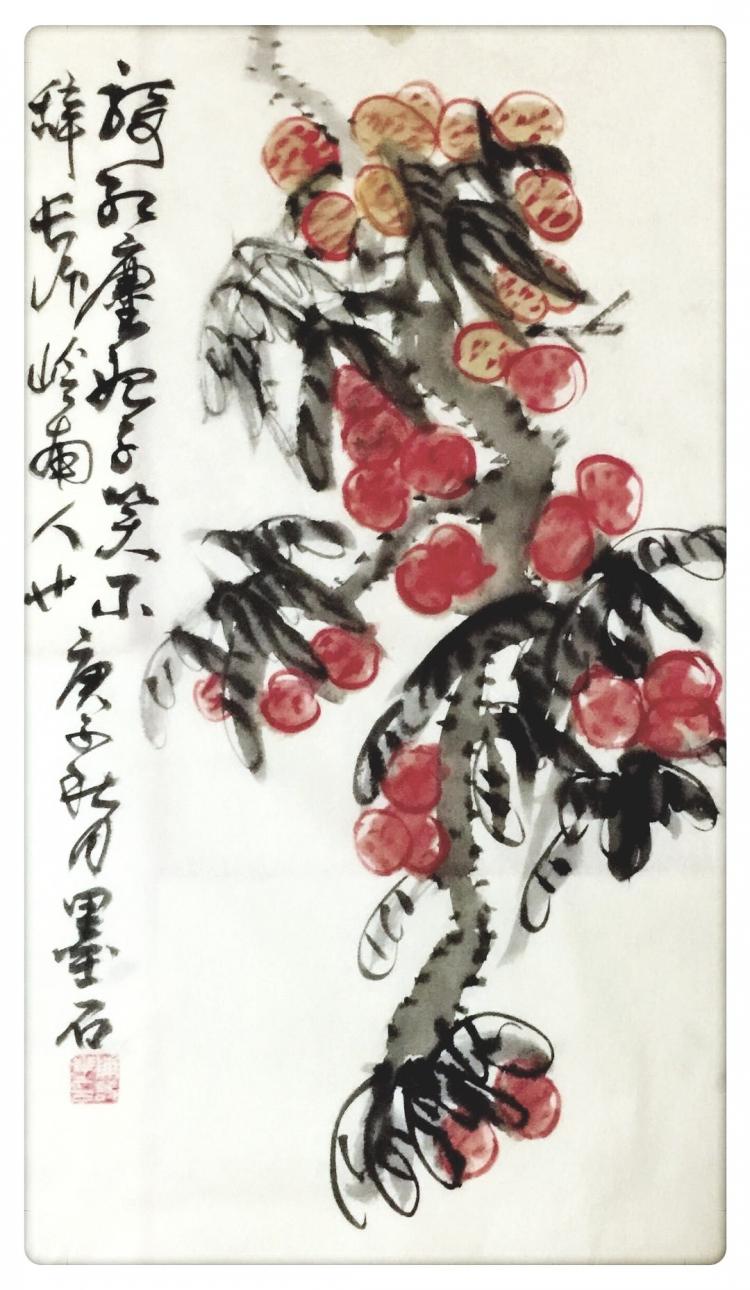 骑红塵妃子笑不
辞长作岭南人也
庚子秋月墨石